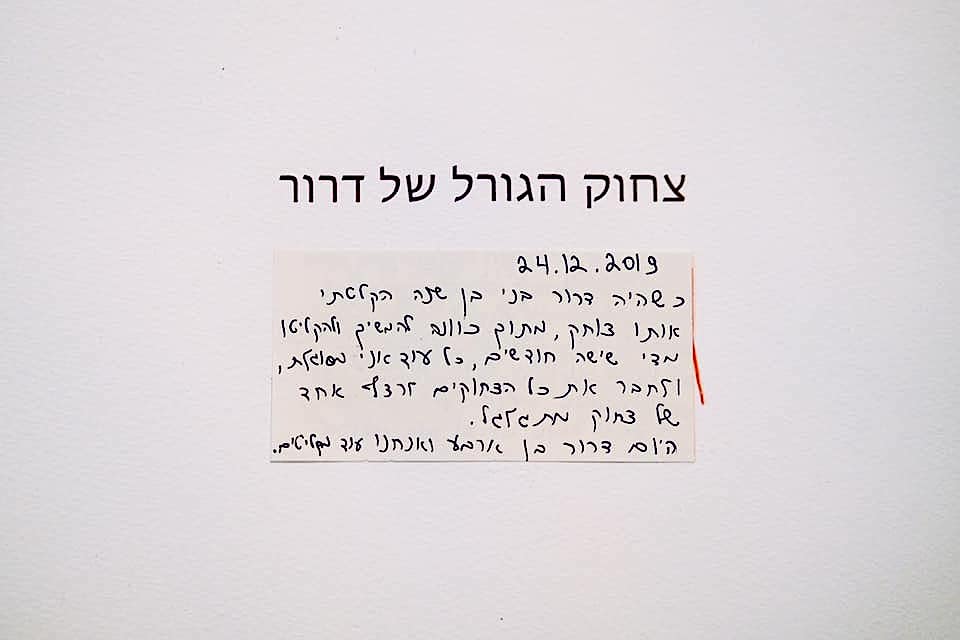 צחוק הגורל של דרור
24.12.2019
כשהיה דרור בני בן שנה הקלטתי
אותו צוחק, מתוך כוונה להמשיך ולהקליטו
מדי שישה חודשים, כל עוד אני מסוגלת,
ולחבר את כל הצחוקים לרצף אחד
של צחוק מתגלגל.
היום דרור בן ארבע ואנחנו עוד מקליטים.